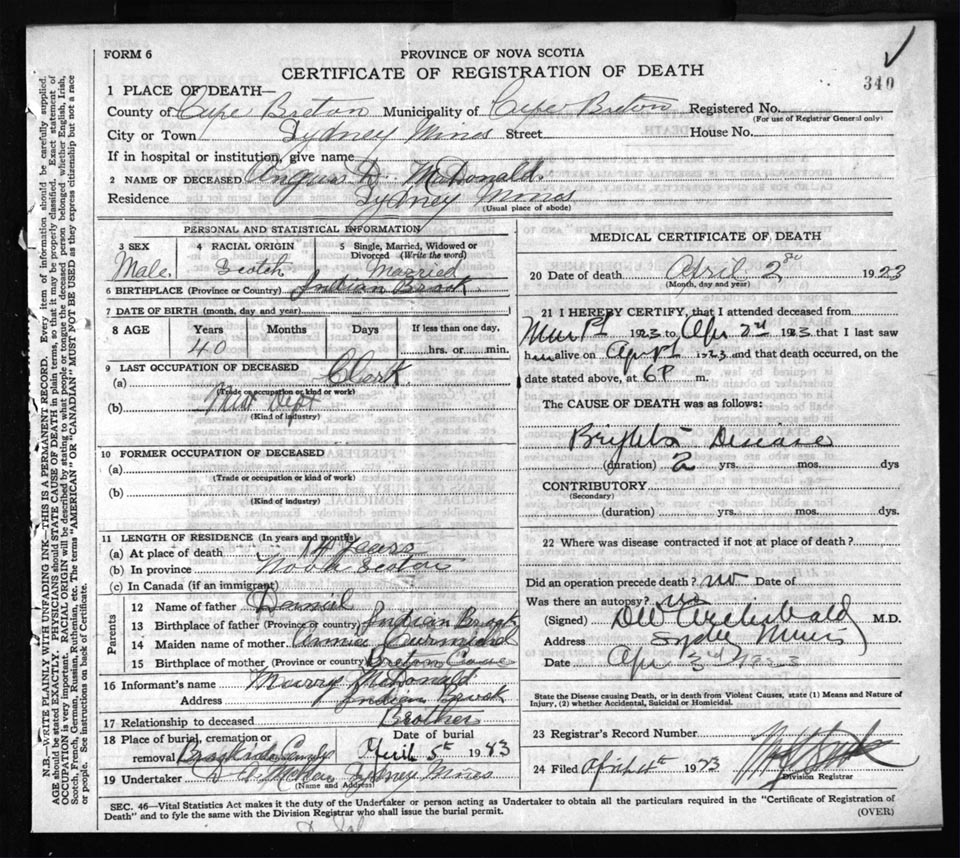 FORM 6
PROVINCE OF NOVA SCOTIA
CERTIFICATE OF REGISTRATION OF DEATH
340
1 PLACE OF DEATH—
County of Cape Breton Municipality of Cape Breton Registered No.
(For use of Registrar General only)
City or Town Sydney Mines Street House No.
If in hospital or institution, give name
2 NAME OF DECEASED Angus D. McDonald.
Residence Sydney Mines
(Usual place of abode)
PERSONAL AND STATISTICAL INFORMATION
3 SEX
Male.
4 RACIAL ORIGIN
Scotch
5 Single, Married, Widowed or Divorced (Write the word)
Married
6 BIRTHPLACE (Province or Country) Indian Brook.
7 DATE OF BIRTH (month, day and year)
8 AGE Years Months Days If less than one day,
40 hrs. or min.
9 LAST OCCUPATION OF DECEASED
(a) Clerk
(Trade or occupation or kind of work)
(b) Dept
(Kind of industry)
10 FORMER OCCUPATION OF DECEASED
(a)
(Trade or occupation or kind of work)
(b)
(Kind of industry)
11 LENGTH OF RESIDENCE (In years and months)
(a) At place of death 14 years
(b) In province Nova Scotia
(c) In Canada (if an immigrant)
Parents
12 Name of father Daniel
13 Birthplace of father (Province or country) Indian Brook
14 Maiden name of mother Annie
15 Birthplace of mother (Province or country) Breton Cove
16 Informant's name Murry McDonald
Address Indian Brook
17 Relationship to deceased Brother
18 Place of burial, cremation or removal Date of burial
April 5th 1923
19 Undertaker Sydney Mines
(Name and Address)
MEDICAL CERTIFICATE OF DEATH
20 Date of death April 2nd 1923
(Month, day and year)
21 I HEREBY CERTIFY, that I attended deceased from
1923 to Apr 2nd 1923 that I last saw
him alive on Apr 1st 1923 and that death occurred, on the
date stated above, at 6 P m.
The CAUSE OF DEATH was as follows:
Brights Disease
(duration) 2 yrs. mos. dys
CONTRIBUTORY
(Secondary)
(duration) yrs. mos. dys.
22 Where was disease contracted if not at place of death?
Did an operation precede death? no Date of
Was there an autopsy? no
(Signed) DW Archibald M.D.
Address Sydney Mines
Date Apr 3rd 1923
State the Disease causing Death, or in death from Violent Causes, state (1) Means and Nature of Injury, (2) whether Accidental, Suicidal or Homicidal.
23 Registrar's Record Number
24 Filed April 4th 1923
Division Registrar
SEC. 46—Vital Statistics Act makes it the duty of the Undertaker or person acting as Undertaker to obtain all the particulars required in the "Certificate of Registration of
Death" and to fyle the same with the Division Registrar who shall issue the burial permit.
(OVER)
N.B.—WRITE PLAINLY WITH UNFADING INK—THIS IS A PERMANENT RECORD. Every item of information should be carefully supplied.
AGE should be stated EXACTLY. PHYSICIANS should STATE CAUSE OF DEATH in plain terms, so that it may be properly classified. Exact statement of
OCCUPATION is very important. RACIAL ORIGIN will be described by stating to what people or tongue the deceased person belonged whether English, Irish,
Scotch, French, German, Russian, Ruthenian, etc. The terms "AMERICAN" OR "CANADIAN" MUST NOT BE USED as they express citizenship but not a race
or people. See instructions on back of Certificate.